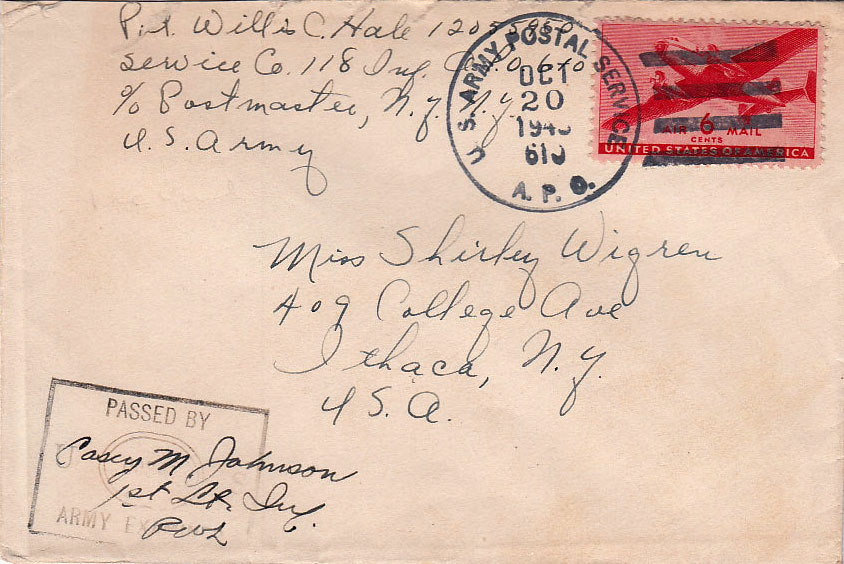 Pvt. Willis C. Hale
Service Co. 118 Inf.
c/o Postmaster, N.Y. N.Y.
U.S. Army
U.S. ARMY POSTAL SERVICE
OCT
20
A.P.O.
AIR 6 MAIL
CENTS
UNITED STATES OF AMERICA
Miss Shirley Wigren
409 College Ave
Ithaca, N.Y.
U.S.A.
PASSED BY
Casey M Johnson
1st Lt. Inf.
ARMY